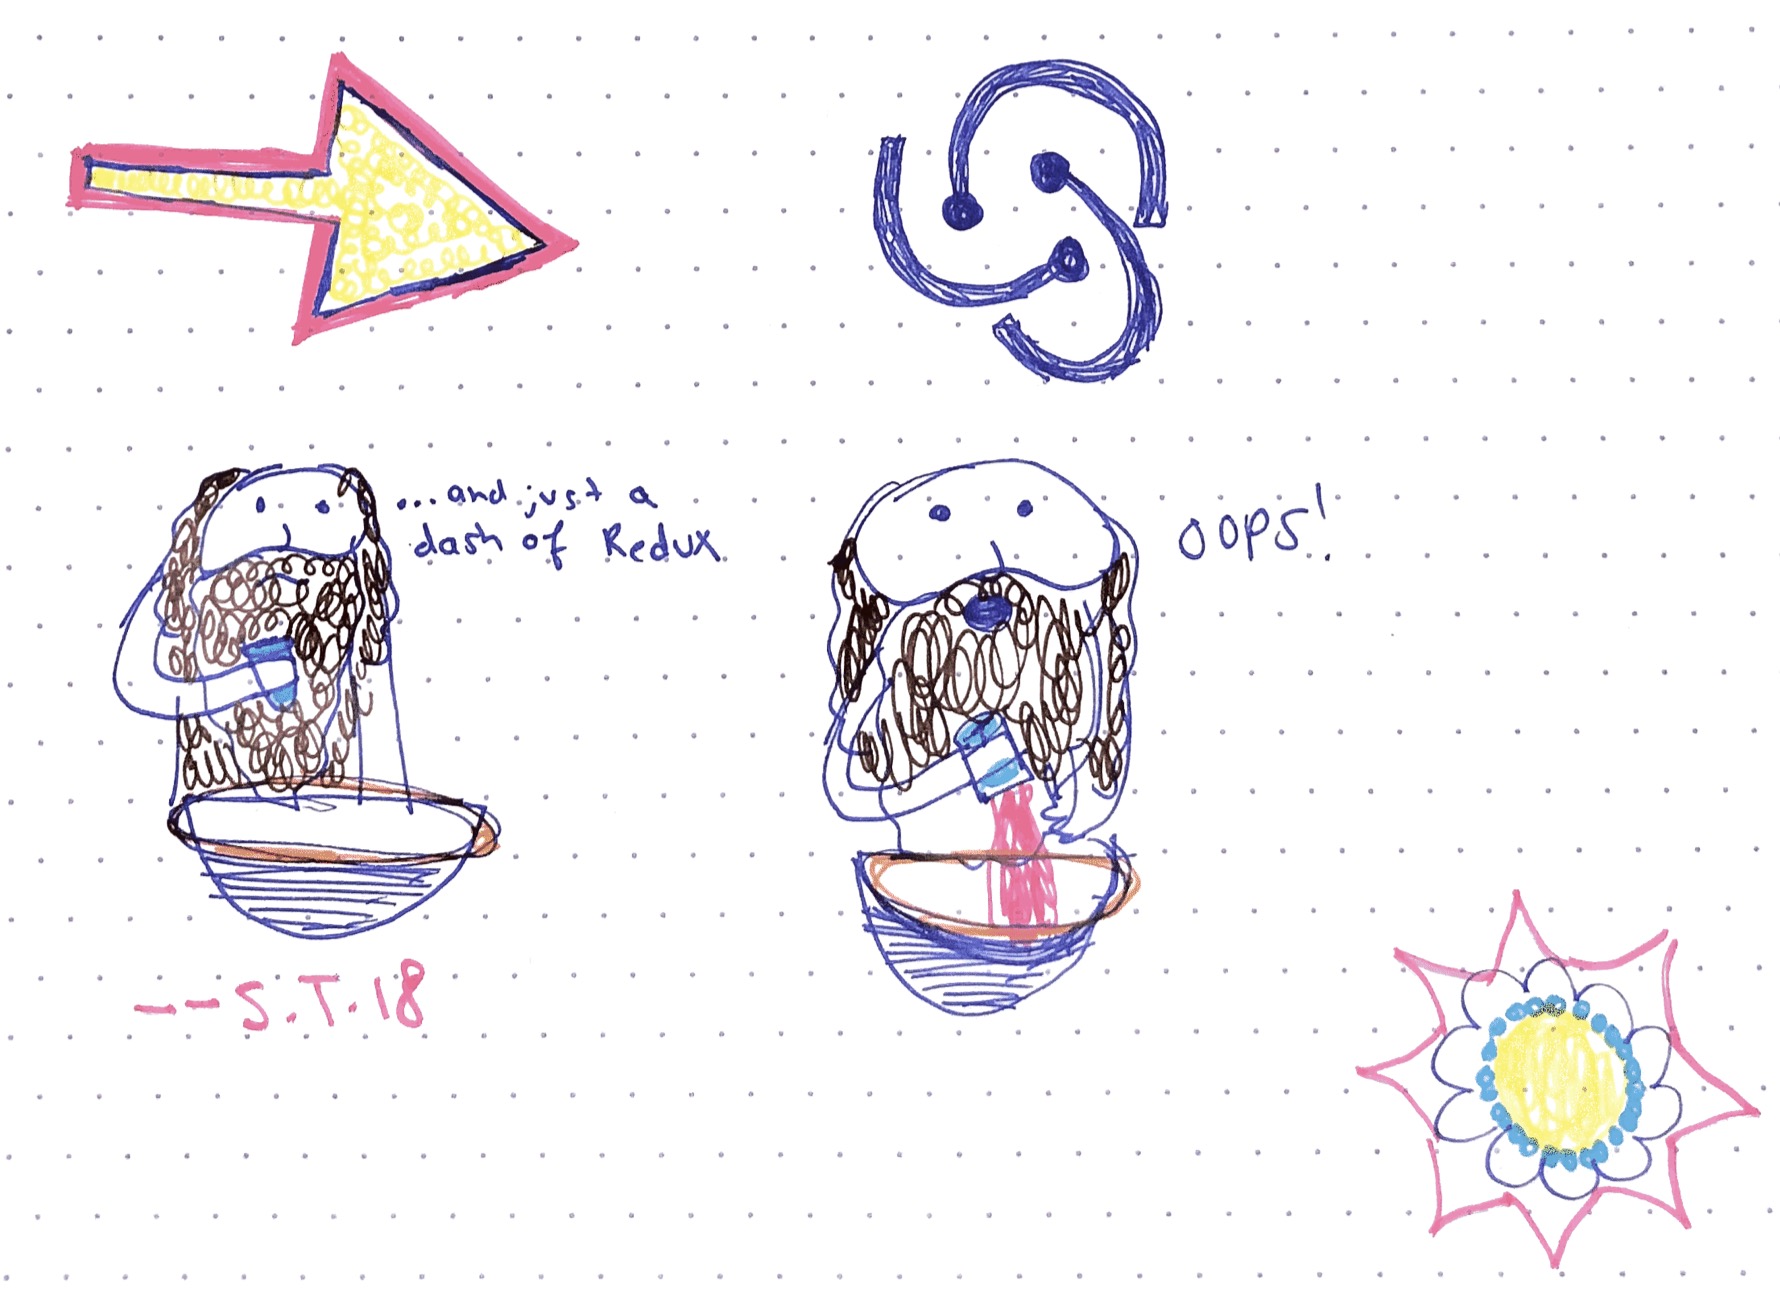 ...and just a
dash of Redux
OOPS!
--S.T.18